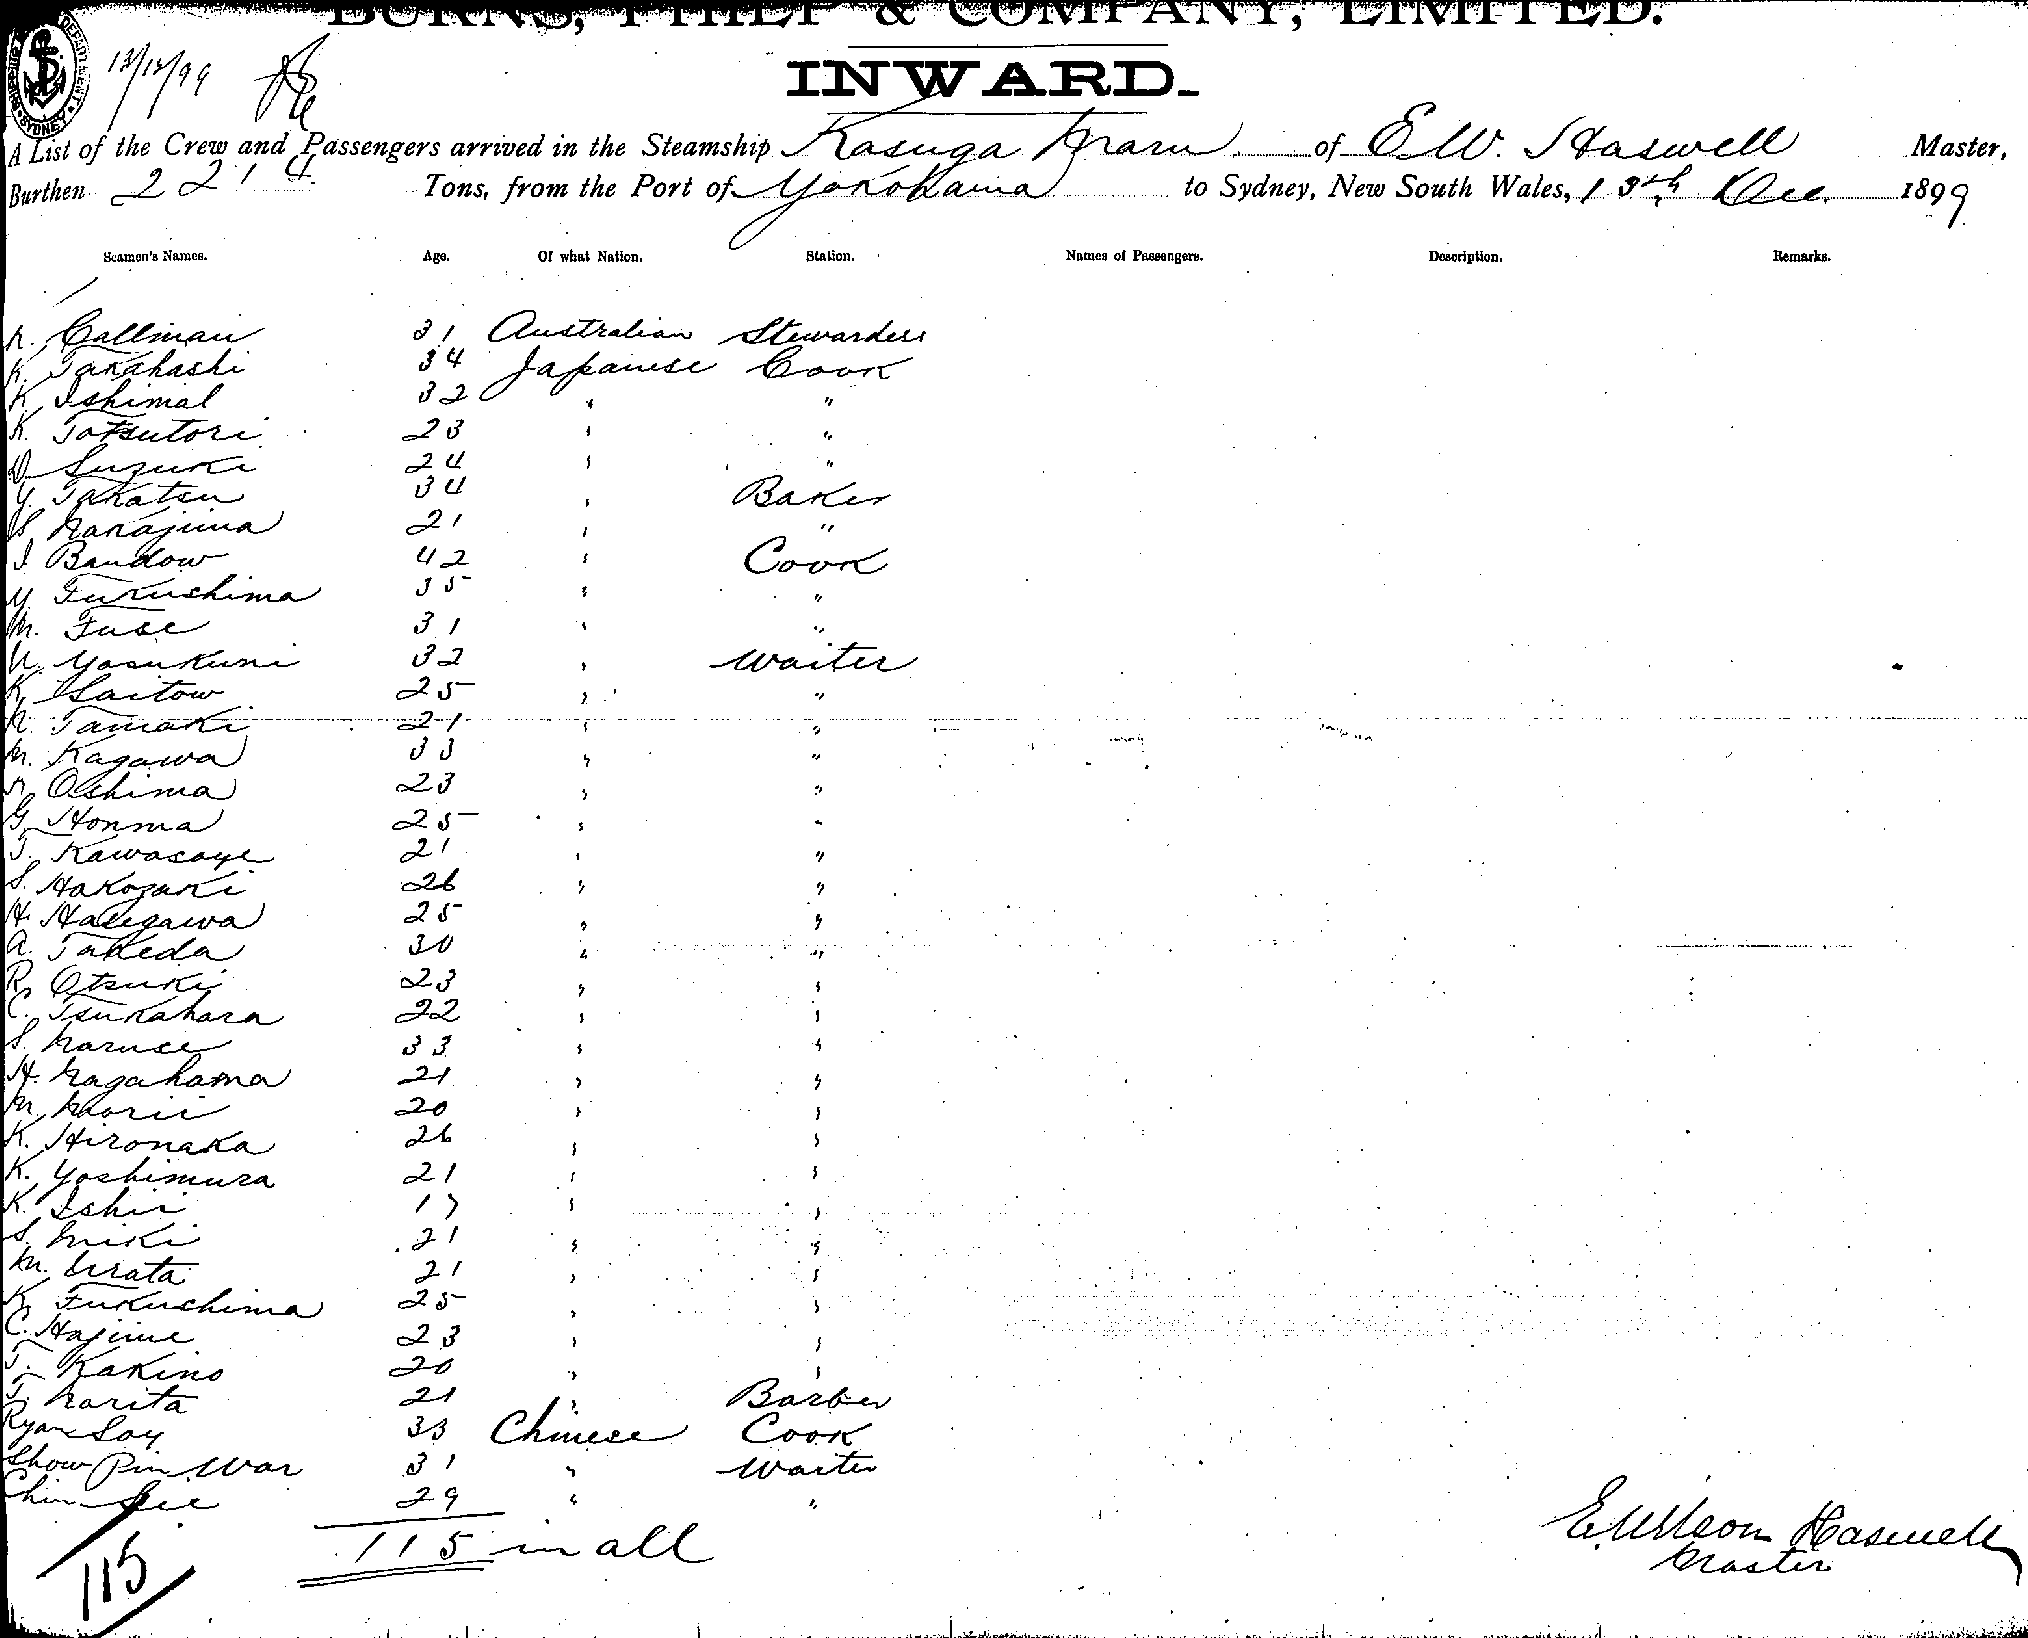 BURNS, PHILP & COMPANY, LIMITED.
INWARD.
13/12/99
SYDNEY
A List of the Crew and Passengers arrived in the Steamship Kasuga Maru of E.W. Haswell Master,
Burthen 2214 Tons, from the Port of Yokohama to Sydney, New South Wales, 13th Dec. 1899
Seamen's Names. Age. Of what Nation. Station. Names of Passengers. Description. Remarks.
N. Callinan 31 Australian Stewardess
K. Takahashi 34 Japanese Cook
K. Ishimal 32 " "
K. Tatsutori 23 " "
D. Suzuki 24 " "
Y. Takatsu 34 " Baker
S. Nakajima 21 " "
I. Bandow 42 " Cook
Y. Fukushima 35 " "
M. Fuse 31 " "
U. Yasukuni 32 " Waiter
K. Saitow 25 " "
K. Tamaki 21 " "
M. Kagawa 33 " "
Oshima 23 " "
G. Honma 25 " "
T. Kawasaye 21 " "
S. Hakozaki 26 " "
H. Hasegawa 25 " "
A. Takeda 30 " "
R. Otsuki 23 " "
C. Tsukahara 22 " "
S. Naruse 33 " "
H. Nagahama 21 " "
M. Morii 20 " "
K. Hironaka 26 " "
K. Yoshimura 21 " "
K. Ishii 17 " "
S. Miki 21 " "
M. Urata 21 " "
K. Fukushima 25 " "
C. Hajime 23 " "
T. Kakino 20 " "
T. Narita 21 " Barber
Ryan Soy 33 Chinese Cook
Show Pin War 31 " Waiter
Chin See 29 " "
115 in all
115
E. Wilson Haswell
Master